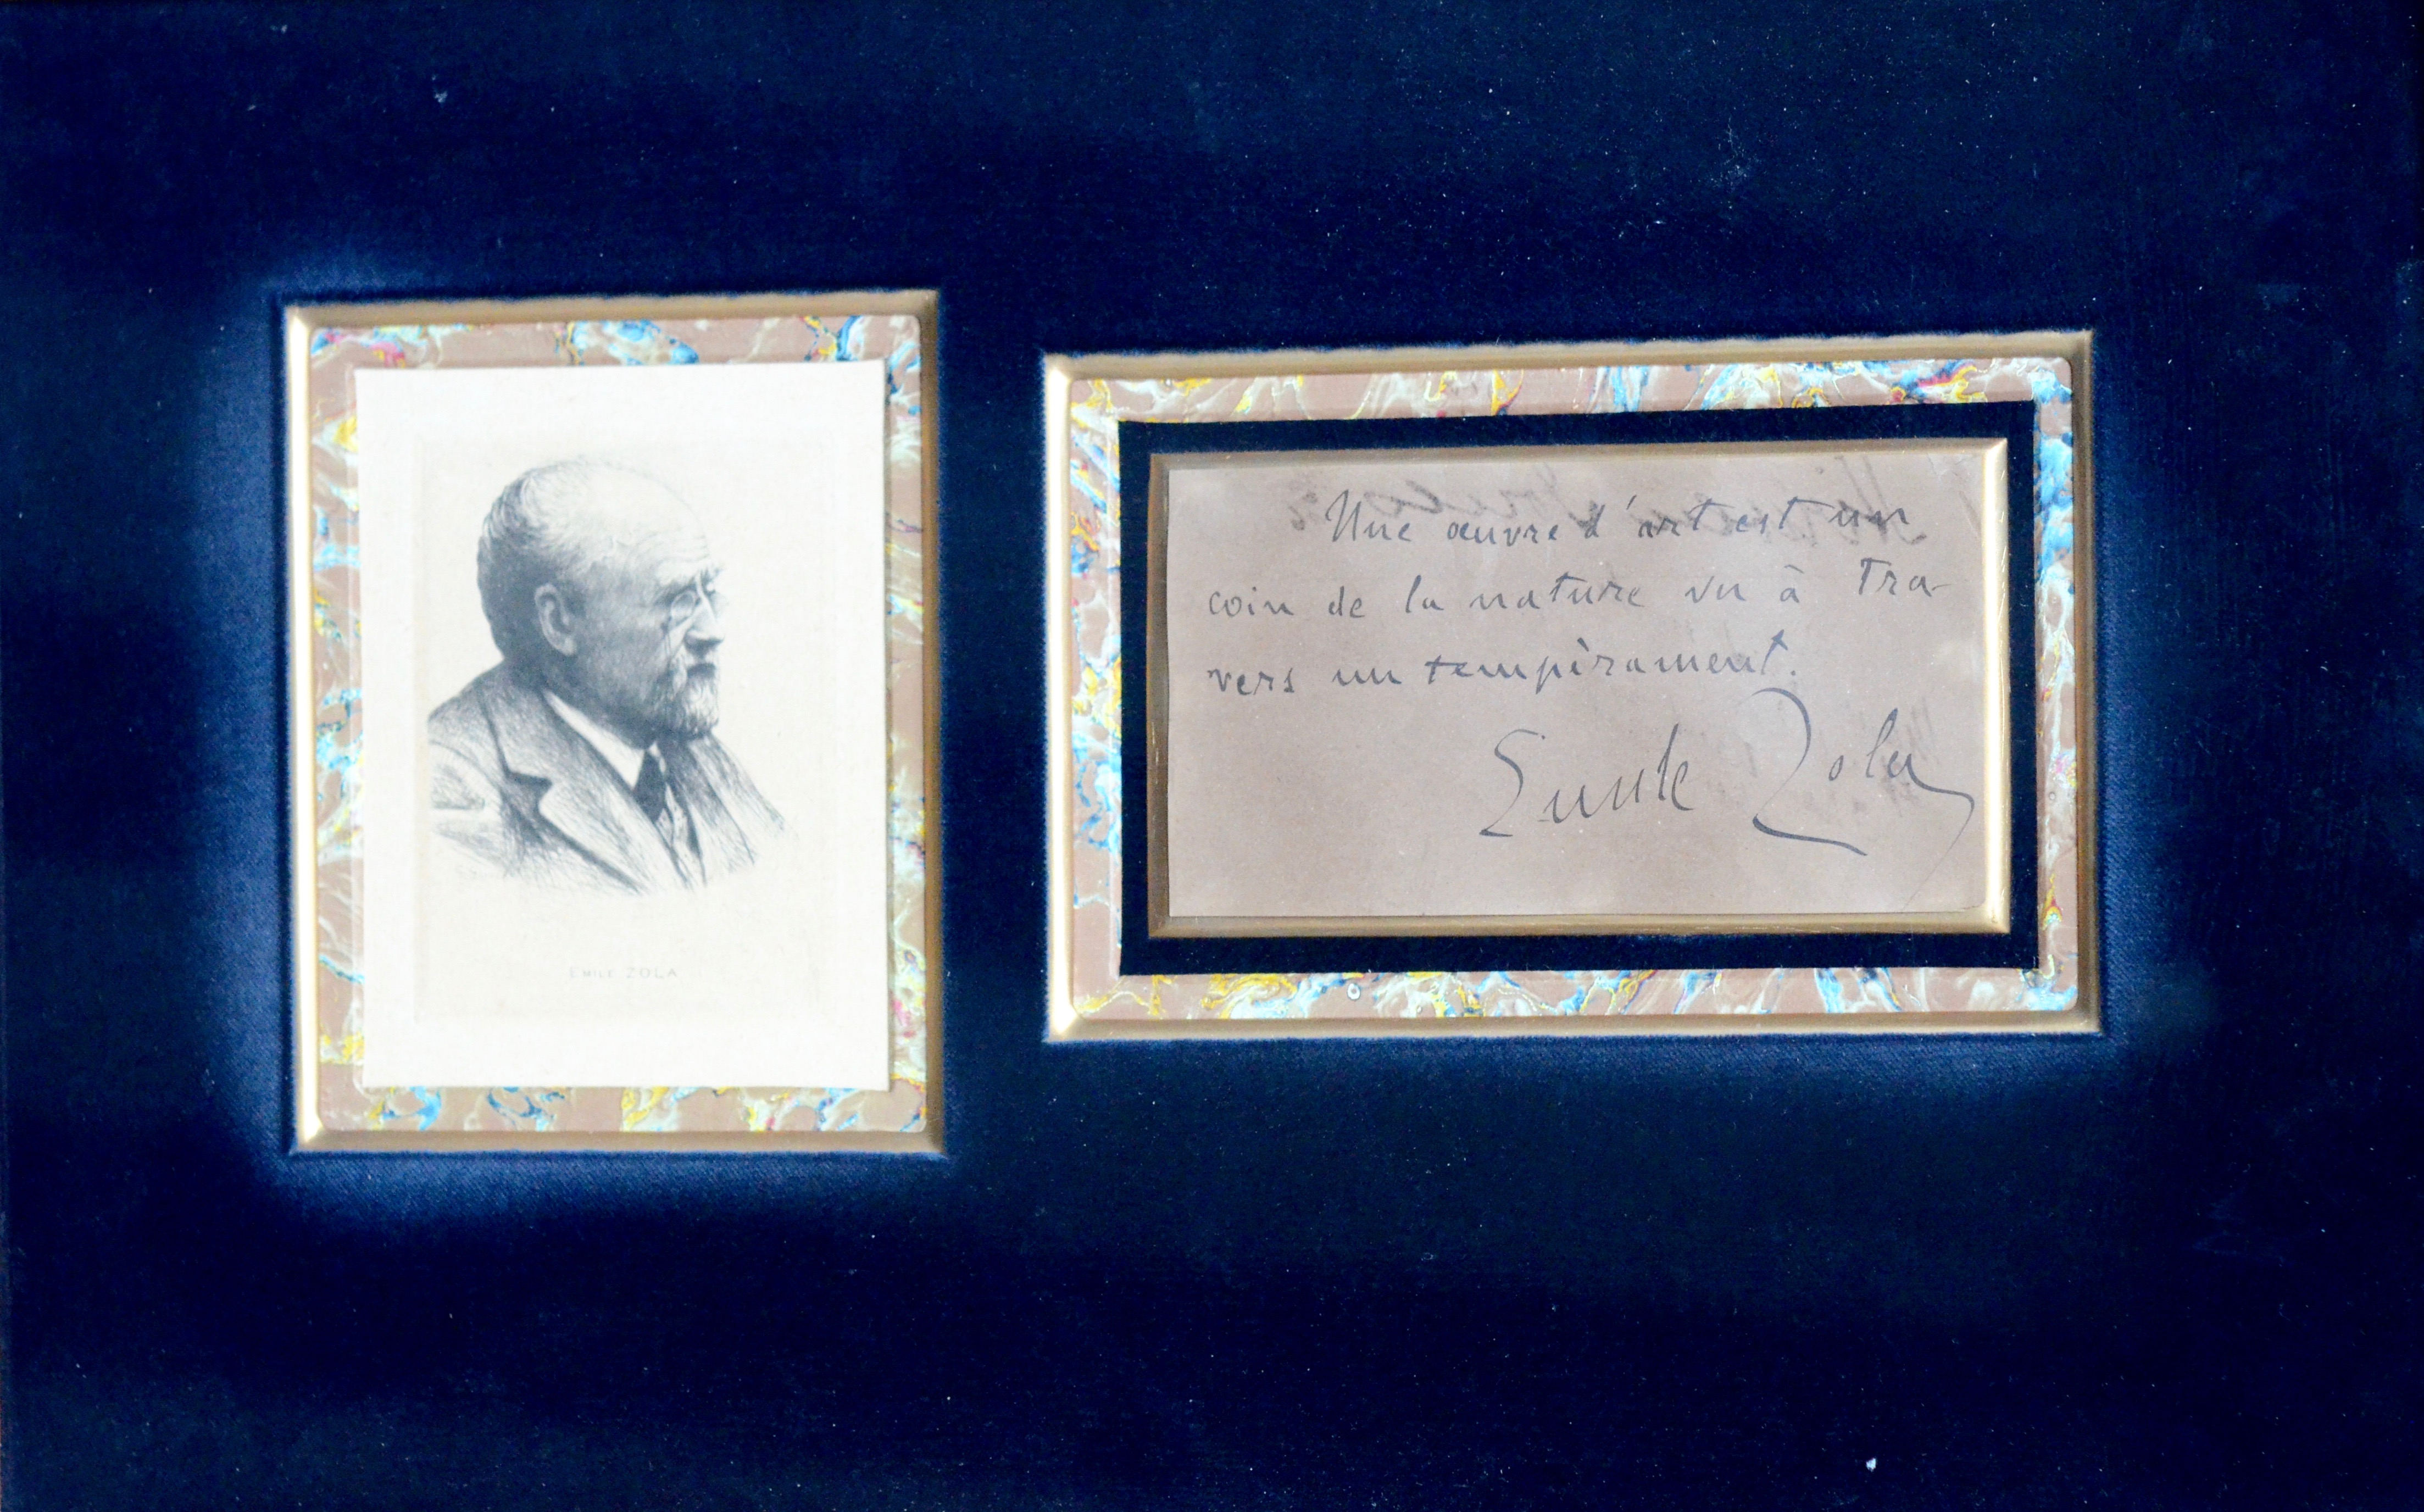 EMILE ZOLA
Une œuvre d'art est un
coin de la nature vu à tra-
vers un tempèrament.
Emile Zola